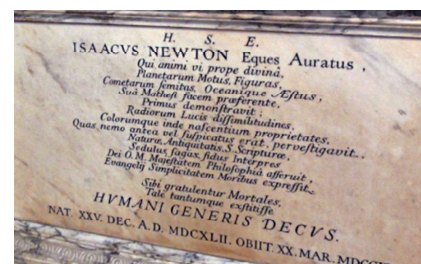 H. S. E.
ISAACVS NEWTON Eques Auratus,
Qui animi vi prope divinâ,
Planetarum Motus, Figuras,
Cometarum semitas, Oceanique Æstus,
Suâ Mathesi facem præferente,
Primus demonstravit;
Radiorum Lucis dissimilitudines,
Colorumque inde nascentium proprietates,
Quas nemo antea vel suspicatus erat, pervestigavit.
Naturæ, Antiquitatis, S. Scripturæ,
Sedulus, sagax, fidus Interpres
Dei O. M. Majestatem Philosophiâ asseruit,
Evangelij Simplicitatem Moribus expressit.
Sibi gratulentur Mortales,
Tale tantumque exstitisse
HVMANI GENERIS DECVS.
NAT. XXV. DEC. A.D. MDCXLII. OBIIT. XX. MAR.